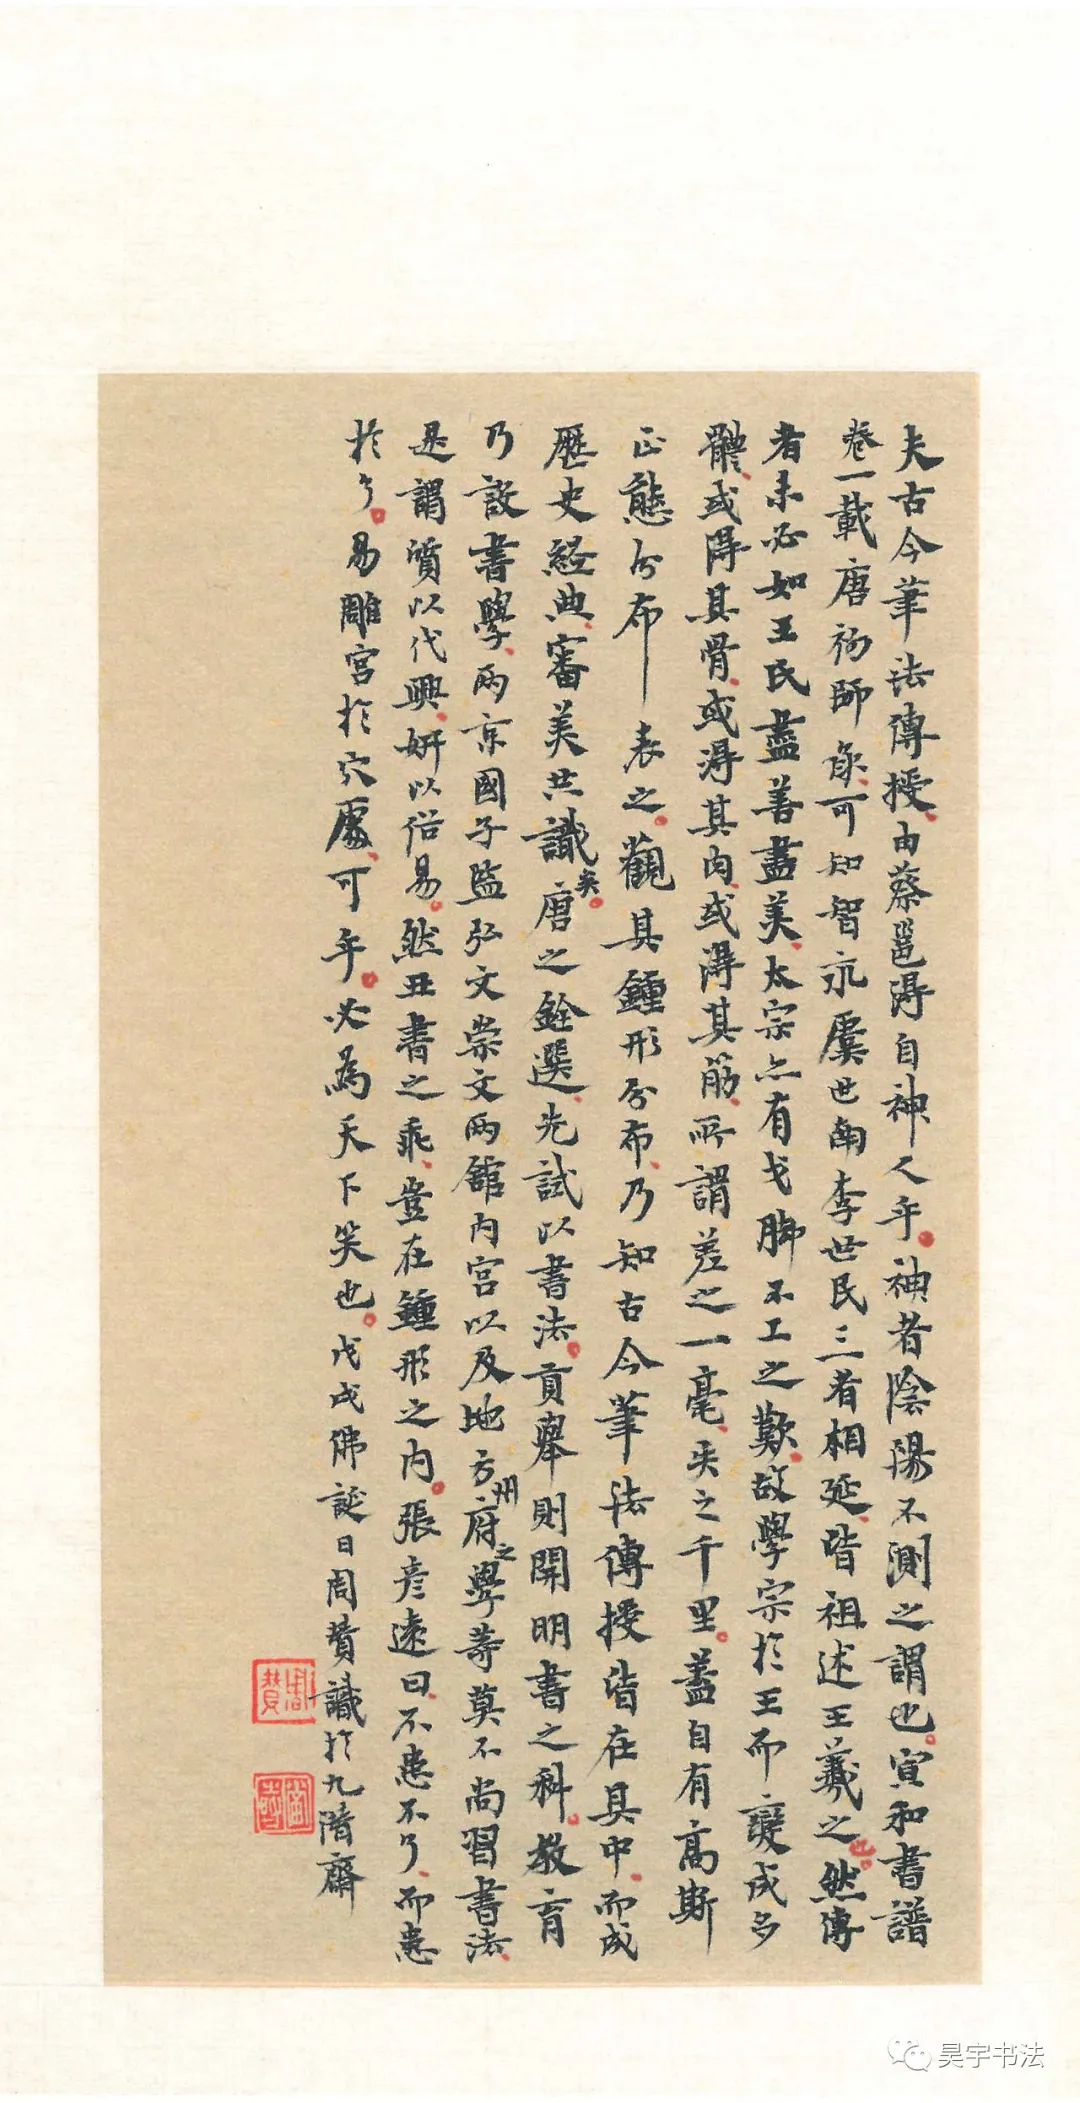 夫古今筆法傳授、由蔡邕得自神人乎。神者陰陽不測之謂也。宣和書譜
卷一載唐初師承、可知智永虞世南李世民三者相延、皆祖述王羲之也。然傳
者未必如王氏盡善盡美、太宗亦有戈腳不工之歎、故學宗於王而變成多
體、或得其骨、或得其肉、或得其筋、所謂差之一毫、失之千里。蓋自有高斯
正態分布一表之。觀其鍾形分布、乃知古今筆法傳授皆在具中、而成
歷史經典、審美共識矣。唐之銓選、先試以書法。貢舉則開明書之科。教育
乃設書學、兩京國子監弘文崇文兩館內宮以及地方州府之學等莫不尚習書法、
是謂質以代興、妍以俗易。然丑書之乖、豈在鍾形之內。張彥遠曰、不患不了、而患
於了。易雕宮於穴處、可乎。必為天下笑也。戊戌佛誕日周贊識於九階齋
周贊
昊宇书法